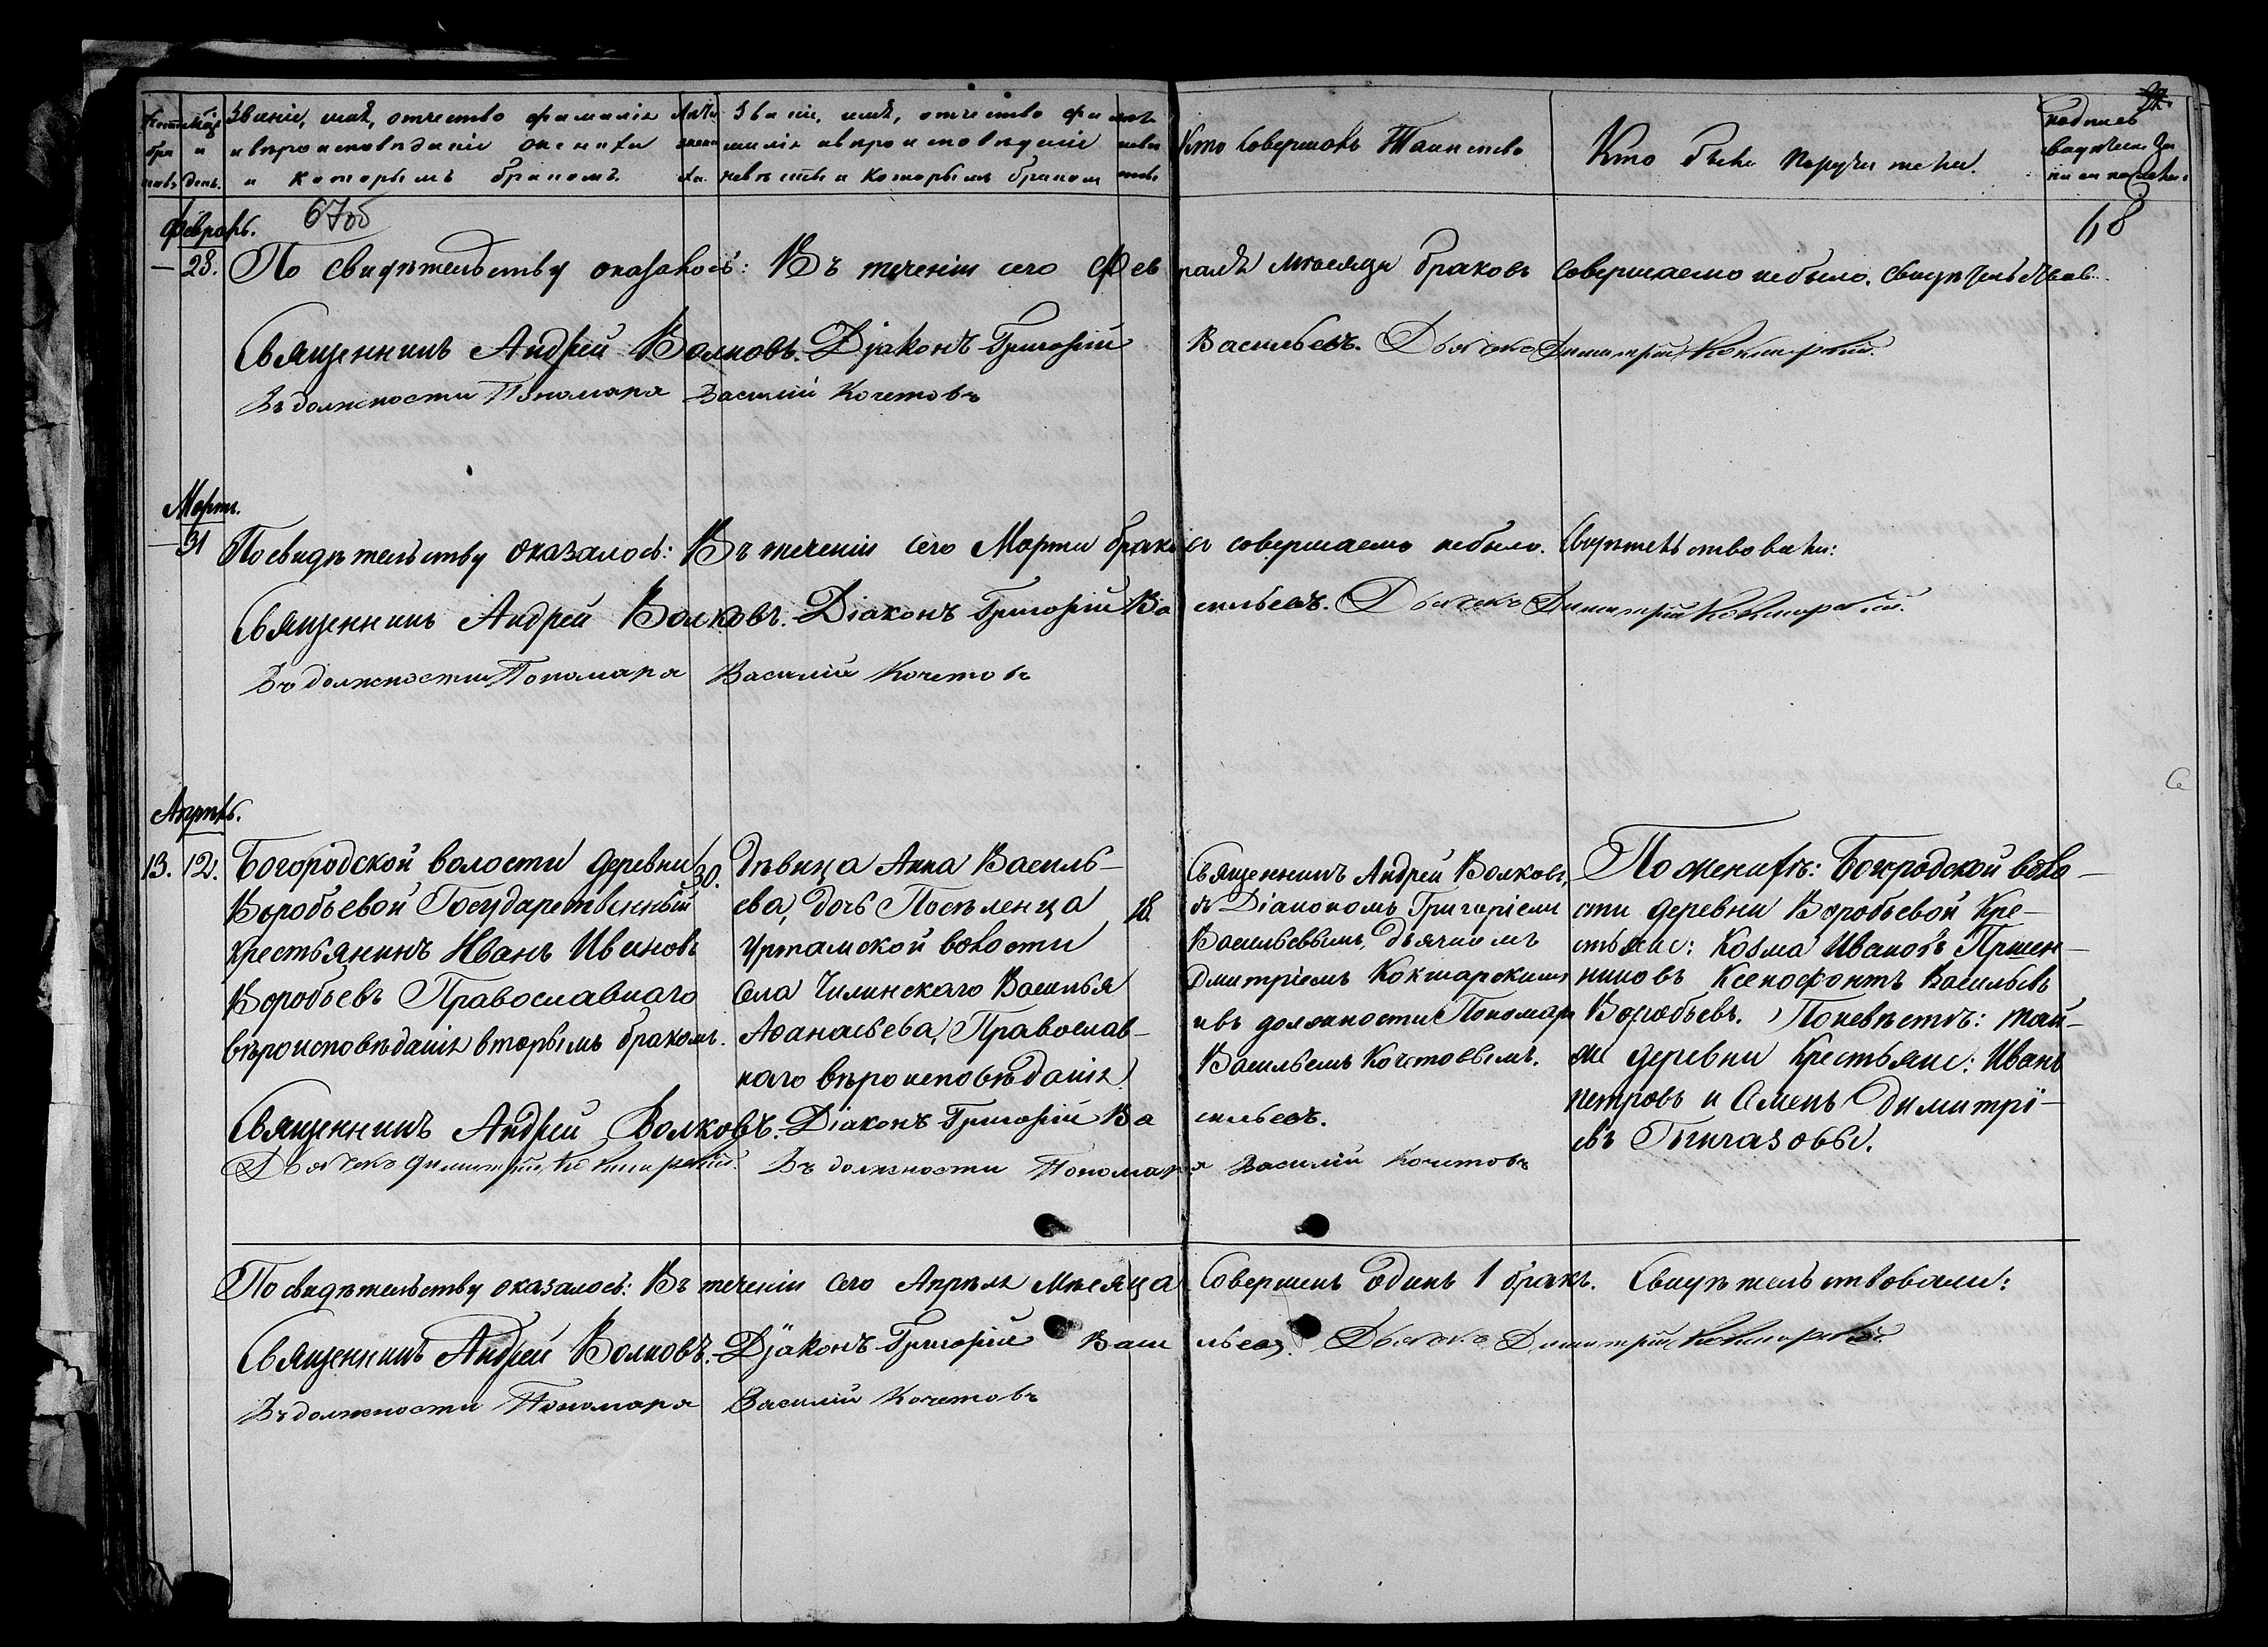 Счетъ бра ковъ
Мѣс. и день.
Званіе, имя, отчество фамилія
и вѣроисповѣданіе жениха
и которымъ бракомъ.
Лѣта жени ха.
Званіе, имя, отчество фа
милія и вѣроисповѣданіе
невѣсты и которымъ бракомъ
лѣт. невѣ сты
Кто совершалъ Таинство
Кто были поручители.
подпись
свидѣтел. за
писи по желан.
67об
68
Февраль.
— 28. По свидѣтельству оказалось: Въ теченіи сего Февраля мѣсяца браковъ совершаемо небыло. Свидѣтельствов.
Священникъ Андрей Волковъ. Діаконъ Григорій Васильевъ. Дьячокъ Димитрій Кокшарскій.
Въ должности Пономаря Василій Кочетовъ
Мартъ.
— 31 По свидѣтельству оказалось: Въ теченіи сего Марта браковъ совершаемо небыло. Свидѣтельствовали:
Священникъ Андрей Волковъ. Діаконъ Григорій Васильевъ. Дьячокъ Димитрій Кокшарскій.
Въ должности Пономаря Василій Кочетовъ
Апрѣль.
13. 12. Богородской волости деревни
Воробьевой Государственный
крестьянинъ Иванъ Ивановъ
Воробьевъ Православнаго
вѣроисповѣданія вторымъ бракомъ.
30.
Дѣвица Анна Василь-
ева, дочь Поселенца
Уртамской волости
Села Чилинскаго Василья
Аѳанасьева, Православ-
наго вѣроисповѣданія
18.
Священникъ Андрей Волковъ,
съ Діакономъ Григоріемъ
Васильевымъ, дьячкомъ
Дмитріемъ Кокшарскимъ
и въ должности Пономаря
Васильемъ Кочетовымъ.
По женихѣ: Богородской воло-
сти деревни Воробьевой Кре-
стьяне: Козма Ивановъ
Ксенофонтъ Васильевъ
Воробьевъ. По невѣстѣ: той-
же деревни Крестьяне: Иванъ
Петровъ и Семенъ Димитрі-
евъ
Священникъ Андрей Волковъ. Діаконъ Григорій Васильевъ.
Дьячокъ Димитрій Кокшарскій. Въ должности Пономаря Василій Кочетовъ
По свидѣтельству оказалось: Въ теченіи сего Апрѣля Мѣсяца Совершенъ Одинъ 1 бракъ. Свидѣтельствовали:
Священникъ Андрей Волковъ. Діаконъ Григорій Васильевъ. Дьячокъ Димитрій Кокшарскій
Въ должности Пономаря Василій Кочетовъ